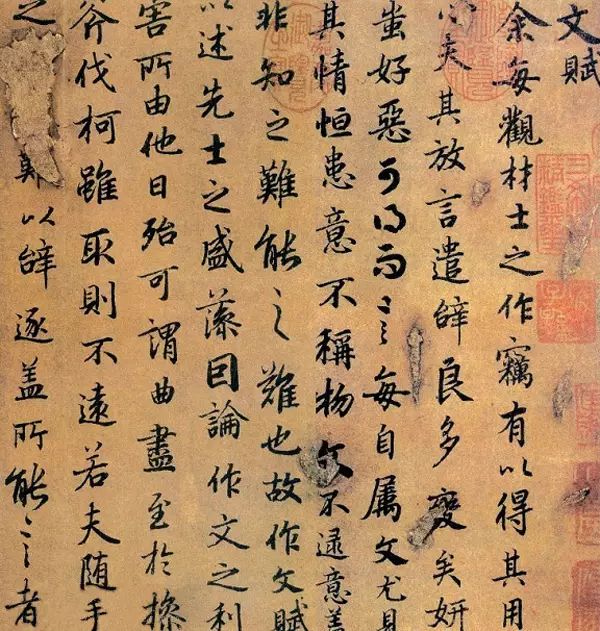 文賦
余每觀材士之作竊有以得其用
心夫其放言遣辭良多變矣妍
蚩好惡可得而言每自属文尤見
其情恒患意不稱物文不逮意盖
非知之難能之難也故作文賦
以述先士之盛藻因論作文之利
害所由他日殆可謂曲盡至於操
斧伐柯雖取則不遠若夫随手
之難以辭逐盖所能言者
三希堂精鑑璽
宜子孫